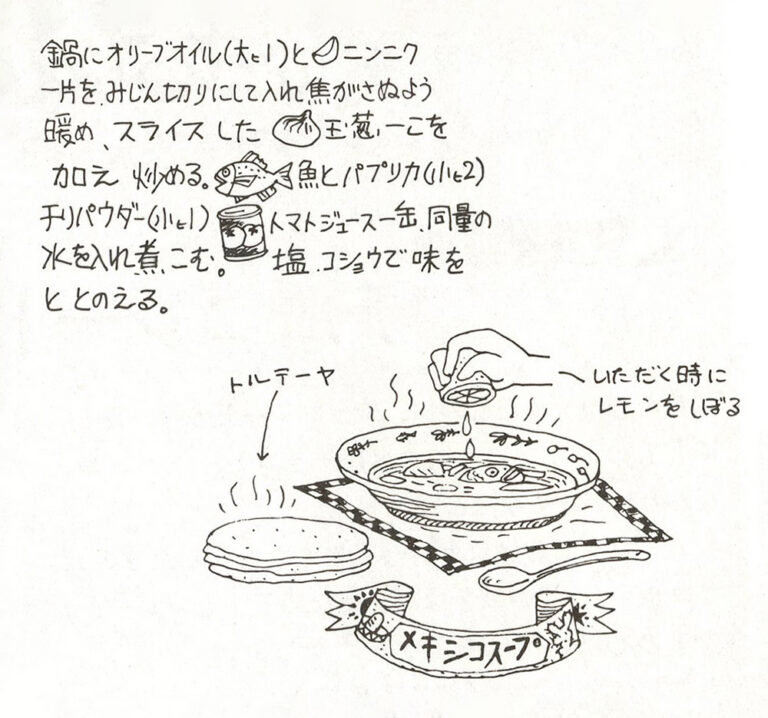 鍋にオリーブオイル(大匕1)とニンニク
一片を、みじん切りにして入れ焦がさぬよう
暖め、スライスした玉葱、一こを
加え 炒める。魚とパプリカ(小匕2)
チリパウダー(小匕1)トマトジュース一缶、同量の
水を入れ煮こむ。塩、コショウで味を
ととのえる。
トルテーヤ
いただく時に
レモンをしぼる
メキシコスープ